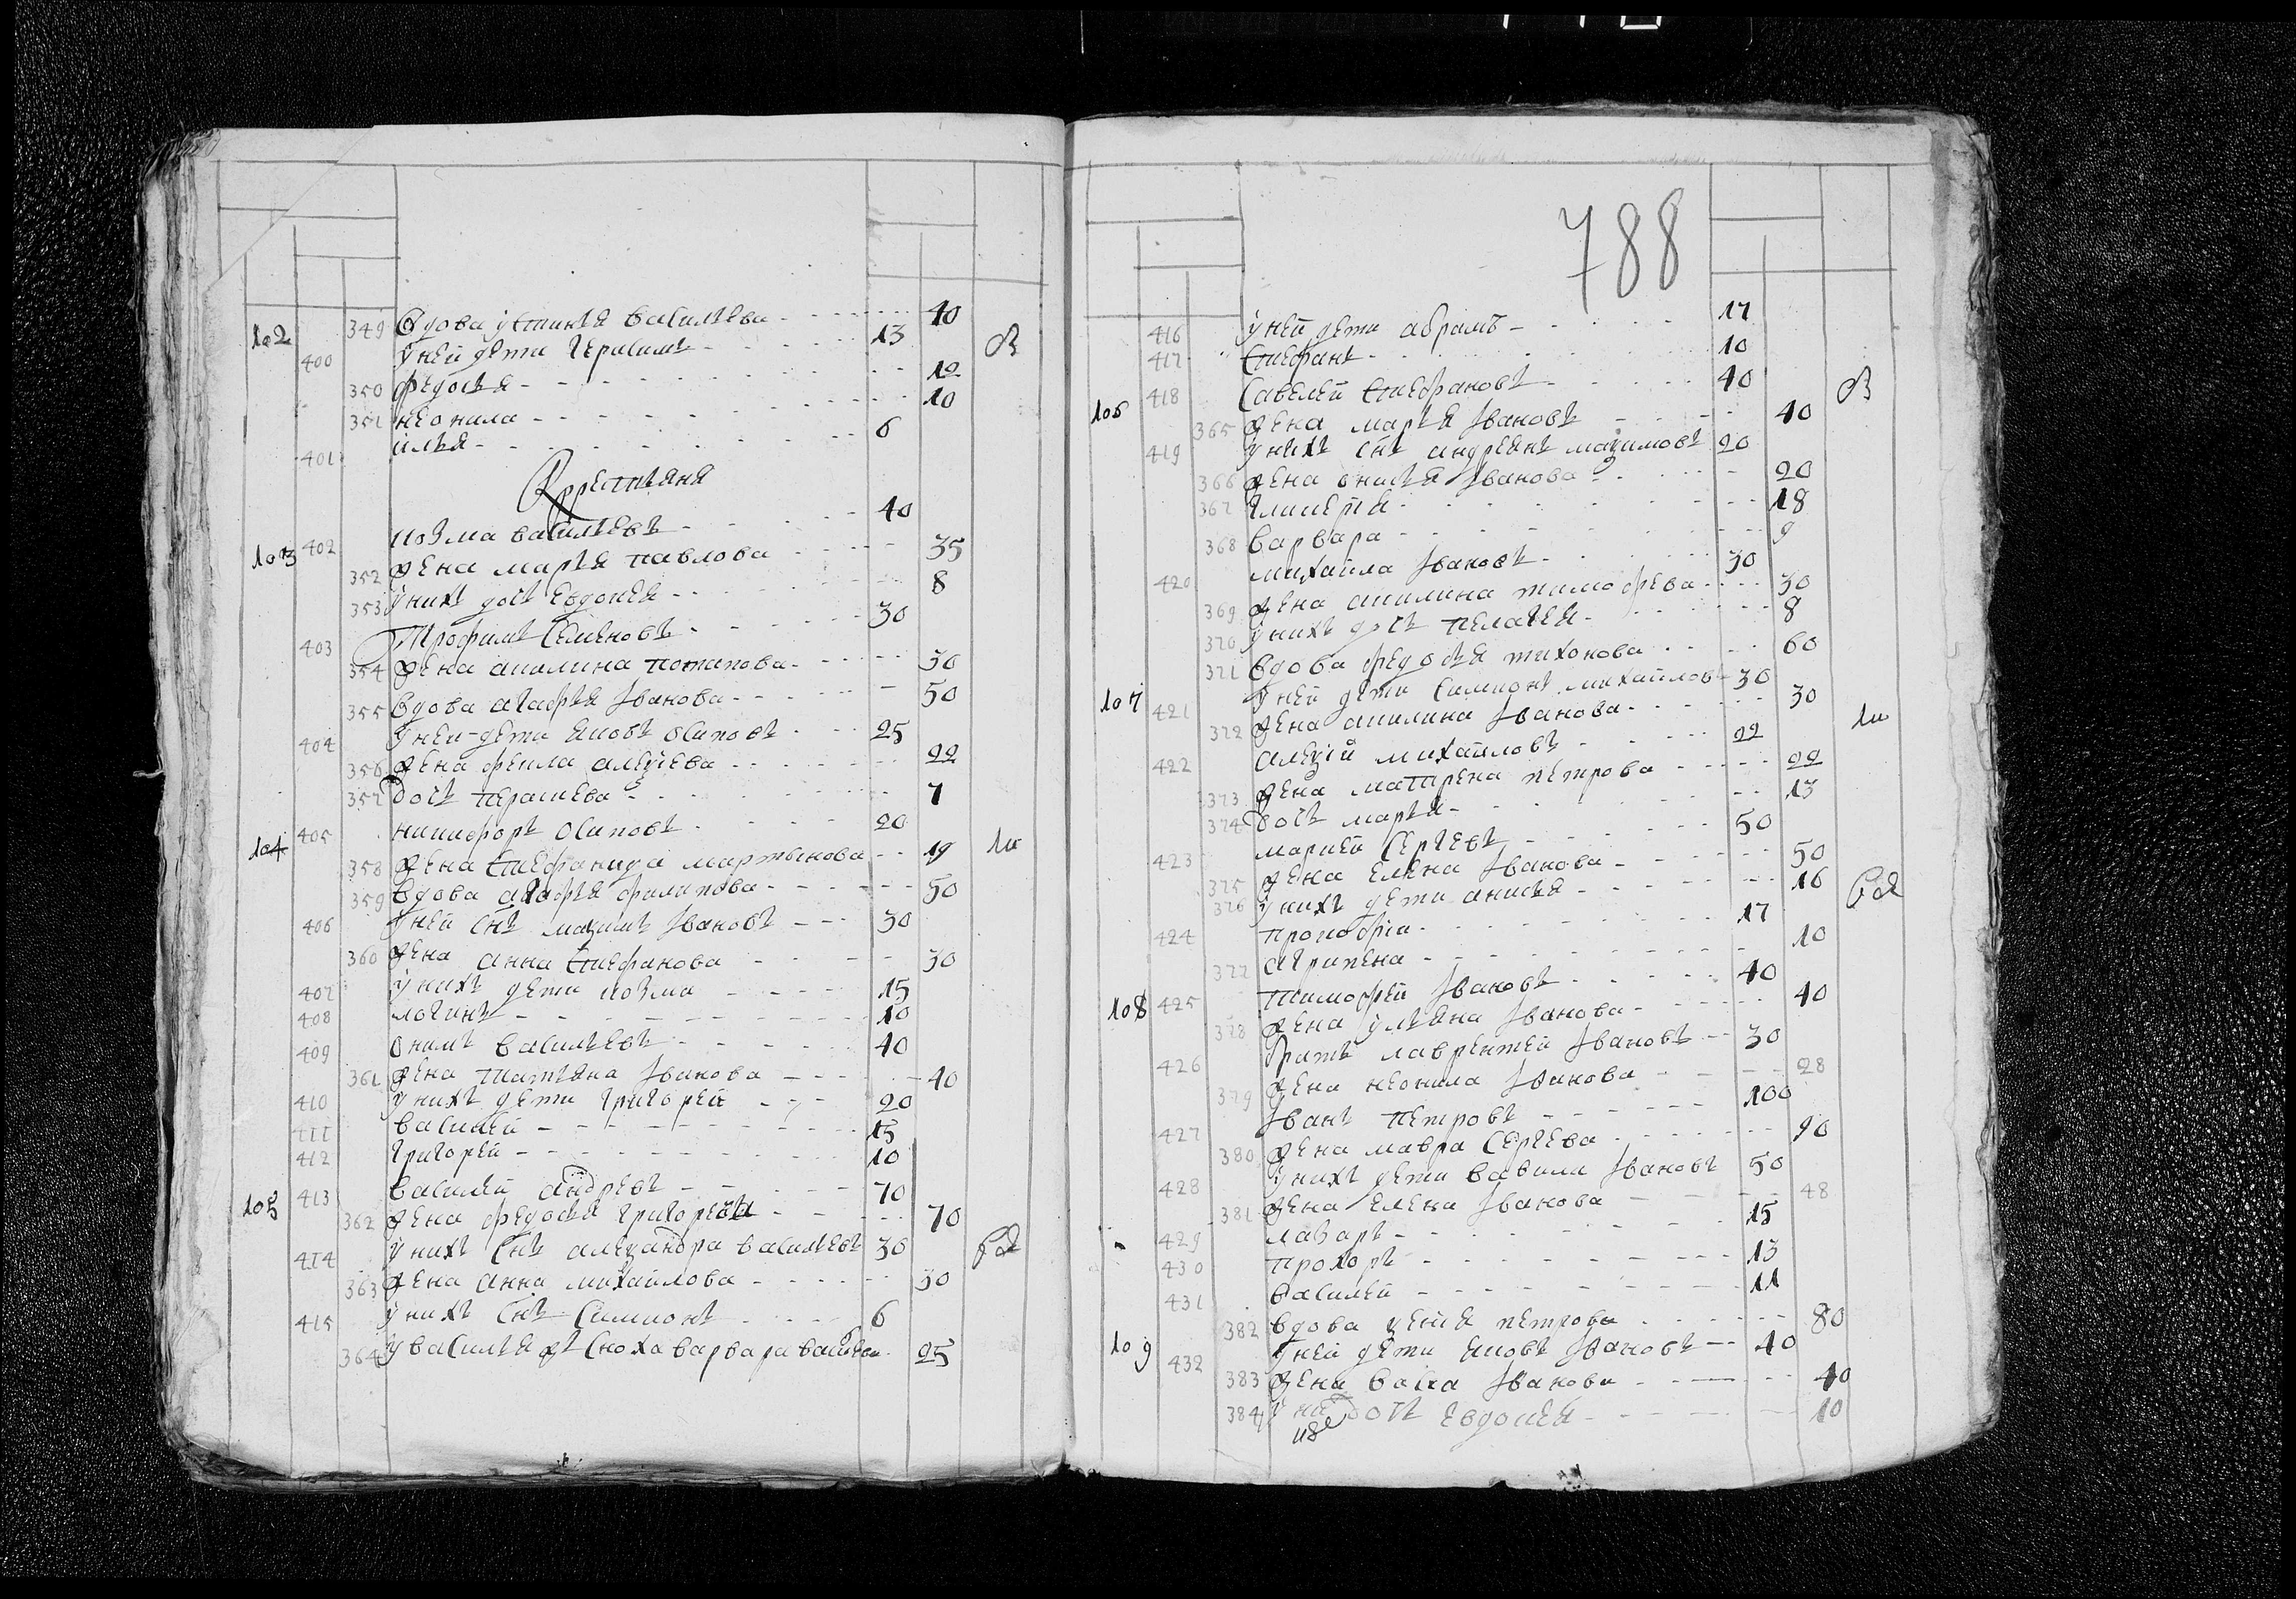 102 349 Вдова устинья васильева 40
400 у ней дети герасимъ 13
350 федосья 12
351 неонила 10
401 илья 6
Крестьяня
103 402 козма васильевъ 40
352 жена марья павлова 35
353 у нихъ дочь евдокея 8
403 Трофимъ Семеновъ 30
354 жена акилина потапова 30
355 вдова агафья Iванова 50
404 у ней дети яковъ осиповъ 25
356 жена фекла алеѯева 22
357 дочь парасковья 7
104 405 никифоръ осиповъ 20
358 жена стефанида мартынова 19
359 вдова агафья филипова 50
406 у ней снъ маѯимъ Iвановъ 30
360 жена анна стефанова 30
407 у нихъ дети козма 15
408 логинъ 10
409 екимъ васильевъ 40
361 жена татьяна Iванова 40
410 у нихъ дети григорей 20
411 василей 15
412 григорей 10
105 413 василей андревъ 70
362 жена федосья григорева 70
414 у нихъ снъ алеѯандра васильевъ 30
363 жена анна михайлова 30
415 у нихъ снъ Симионъ 6
364 у василья жъ сноха варвара васильева 25
788
416 у ней дети абрамъ 17
417 стефанъ 10
106 418 Савелей стефановъ 40
365 жена марья Iвановъ 40
419 у нихъ снъ андреянъ маѯимовъ 20
366 жена онисья Iванова 20
367 гликерья 18
368 варвара 9
420 михайла Iвановъ 30
369 жена акилина тимофева 30
370 у нихъ дочь пелагея 8
371 вдова федосья тихонова 60
107 421 у ней дети Симионъ михайловъ 30
372 жена акилина Iванова 30
422 алеѯѣй михайловъ 22
373 жена матрена петрова 22
374 дочь марья 13
423 маркей Сергевъ 50
375 жена елена Iванова 50
376 у нихъ дети анисья 16
424 прокофiи 17
377 агрипена 10
108 425 тимофей Iвановъ 40
378 жена ульяна Iванова 40
426 братъ лаврентей Iвановъ 30
379 жена неонила Iванова 28
427 Iванъ петровъ 100
380 жена мавра Сергева 90
428 у нихъ дети вавила Iвановъ 50
381 жена елена Iванова 48
429 лазарь 15
430 прохоръ 13
431 василей 11
382 вдова ѯенья петрова 80
109 432 у ней дети яковъ Iвановъ 40
383 жена васса Iванова 40
384 у нихъ дочь евдокея 10